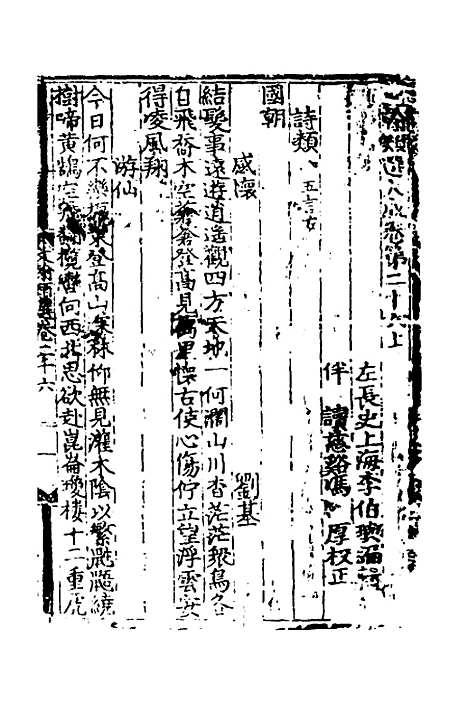 選大成卷第二十六上
左長史上海李伯璵編
伴讀慈谿馮厚校正
詩類 五言古
國朝
感懷 劉基
結髮事遠遊逍遙觀四方天地一何濶山川杳茫茫眾鳥各
自飛喬木空蒼蒼登高見萬里懷古使心傷佇立望浮雲安
得凌風翔
游仙
今日何不樂東登高山采秝仰無見灌木陰以繁鼯鼯繞
樹啼黃鵠空飛翻攬轡向西北思欲赴崑崙瓊樓十二重虎
卷二十六